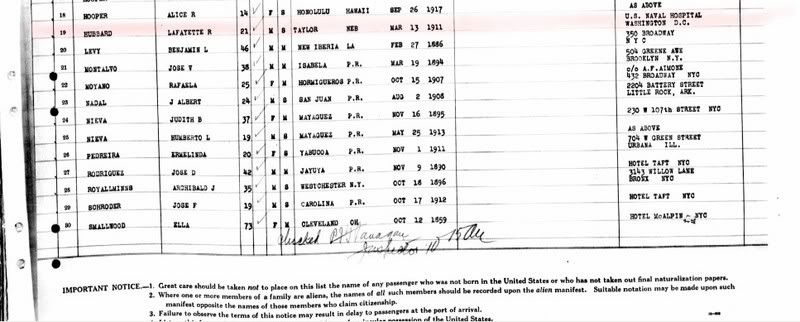 AS ABOVE
18 HOOPER ALICE R 14 F S HONOLULU HAWAII SEP 26 1917
U.S. NAVAL HOSPITAL
19 HUBBARD LAFAYETTE R 21 M S TAYLOR NEB MAR 13 1911 WASHINGTON D.C.
350 BROADWAY
20 LEVY BENJAMIN L 46 M M NEW IBERIA LA FEB 27 1886 N Y C
504 GREENE AVE
21 MONTALVO JOSE V 38 M M ISABELA P.R. MAR 19 1894 BROOKLYN N.Y.
c/o A.F.AIMONE
22 MOYANO RAFAELA 25 F M HORMIGUEROS P.R. OCT 15 1907 432 BROADWAY NYC
2204 BATTERY STREET
23 NADAL J ALBERT 24 M S SAN JUAN P.R. AUG 2 1908 LITTLE ROCK, ARK.
24 NIEVA JUDITH B 37 F M MAYAGUEZ P.R. NOV 16 1895 230 W 107th STREET NYC
25 NIEVA HUMBERTO L 19 M S MAYAGUEZ P.R. MAY 25 1913 AS ABOVE
704 W GREEN STREET
26 PEDREIRA ERMELINDA 20 F S YABUCOA P.R. NOV 1 1911 URBANA ILL.
27 RODRIGUEZ JOSE D 42 M M JAYUYA P.R. NOV 9 1890 HOTEL TAFT NYC
3143 WILLOW LANE
28 ROYALLMINSS ARCHIBALD J 35 M S WESTCHESTER N.Y. OCT 18 1896 BRONX NYC
29 SCHRODER JOSE F 19 M S CAROLINA P.R. OCT 17 1912 HOTEL TAFT NYC
30 SMALLWOOD ELLA 73 F M CLEVELAND OH OCT 12 1859 HOTEL McALPIN NYC
Checked
Inspector
IMPORTANT NOTICE.—1. Great care should be taken not to place on this list the name of any passenger who was not born in the United States or who has not taken out final naturalization papers.
2. Where one or more members of a family are aliens, the names of all such members should be recorded upon the alien manifest. Suitable notation may be made upon such
manifest opposite the names of those members who claim citizenship.
3. Failure to observe the terms of this notice may result in delay to passengers at the port of arrival.